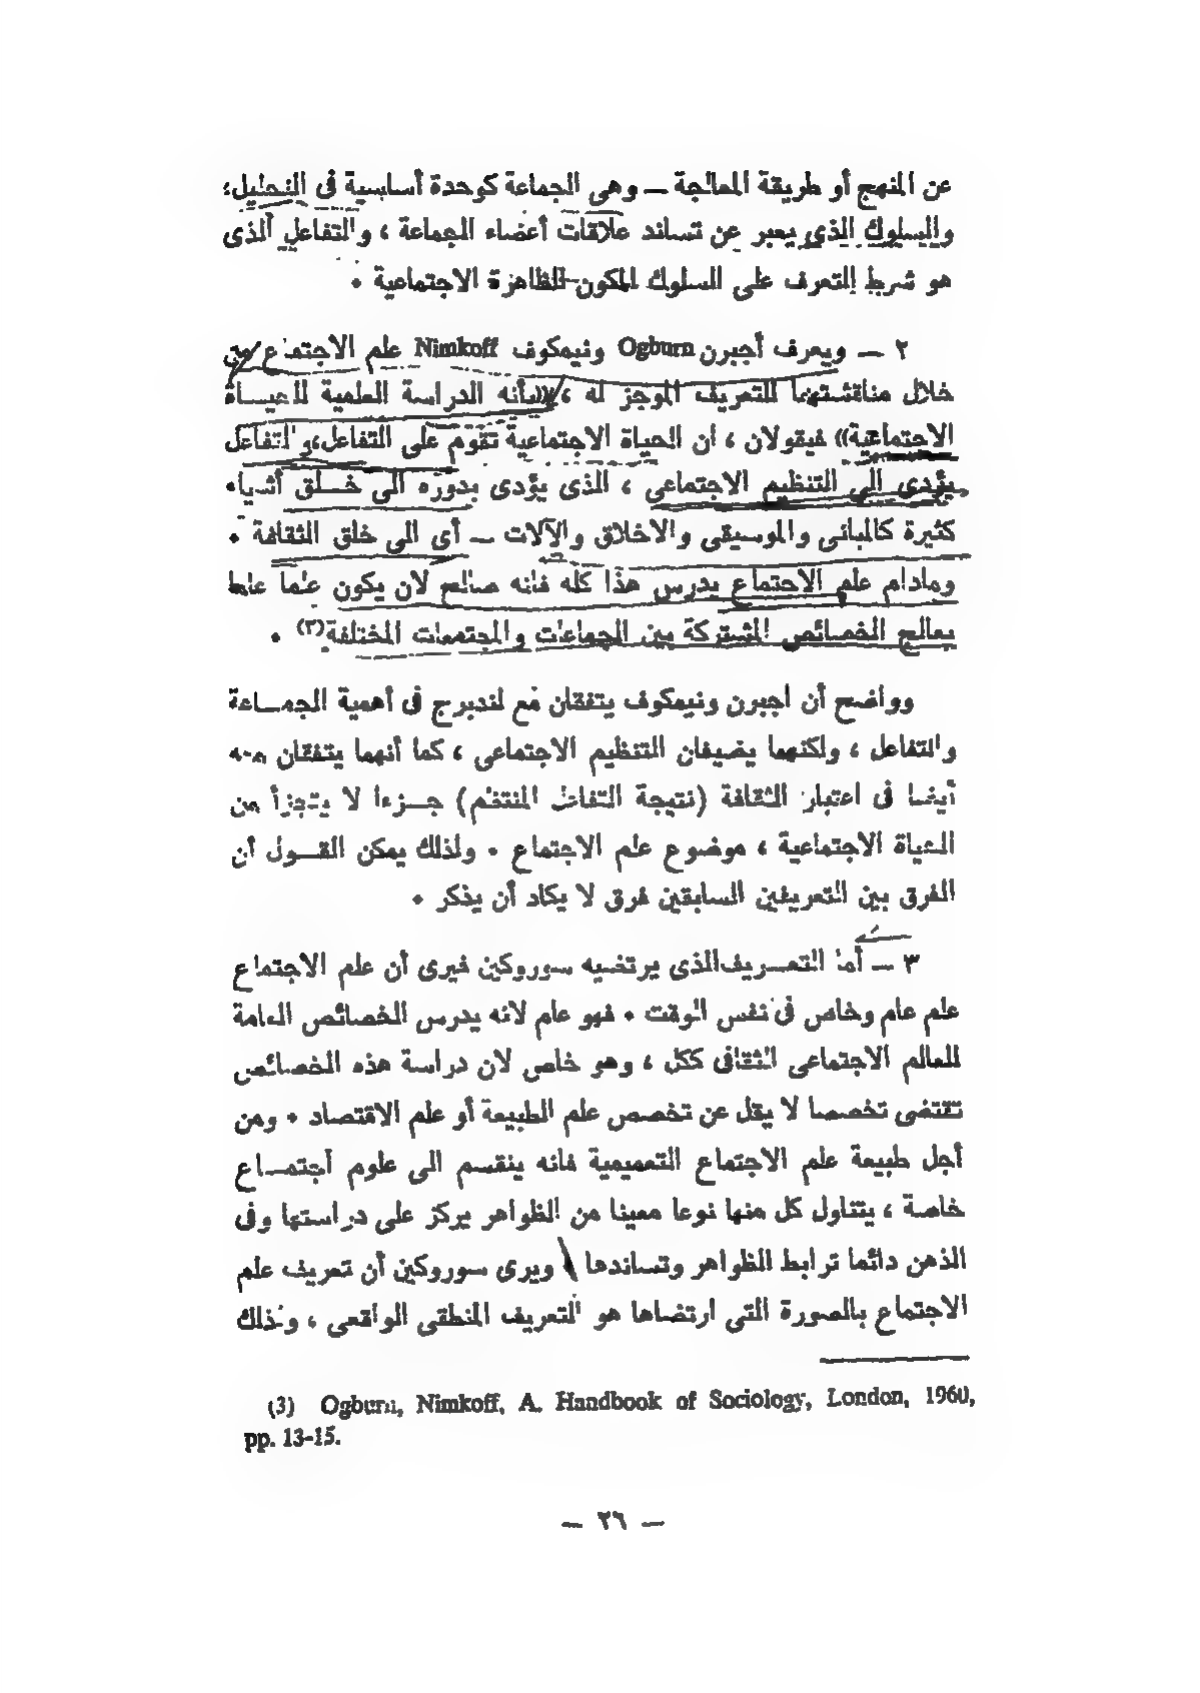 عن المنهج أو طريقة المعالجة — وهى الجماعة كوحدة أساسية فى التحليل،
والسلوك الذى يعبر عن تساند علاقات أعضاء الجماعة ، والتفاعل الذى
هو شرط التعرف على السلوك المكون للظاهرة الاجتماعية ٠
٢ — ويعرف أجبرن Ogburn ونيمكوف Nimkoff علم الاجتماع من
خلال مناقشتهما للتعريف الموجز له ، «بأنه الدراسة العلمية للحيــاة
الاجتماعية» فيقولان ، ان الحياة الاجتماعية تقوم على التفاعل،والتفاعل
يؤدى الى التنظيم الاجتماعى ، الذى يؤدى بدوره الى خــلق أشياء
كثيرة كالمبانى والموسيقى والاخلاق والآلات — أى الى خلق الثقافة ٠
ومادام علم الاجتماع يدرس هذا كله فانه صالح لان يكون علما عاما
يعالج الخصائص المشتركة بين الجماعات والمجتمعات المختلفة(٣) ٠
وواضح أن اجبرن ونيمكوف يتفقان مع لندبرج فى أهمية الجمــاعة
والتفاعل ، ولكنهما يضيفان التنظيم الاجتماعى ، كما أنهما يتفقان معه
أيضا فى اعتبار الثقافة (نتيجة التفاعل المنتظم) جــزءا لا يتجزأ من
الحياة الاجتماعية ، موضوع علم الاجتماع ٠ ولذلك يمكن القــول أن
الفرق بين التعريفين السابقين فرق لا يكاد أن يذكر ٠
٣ — أما التعــريف الذى يرتضيه سوروكين فيرى أن علم الاجتماع
علم عام وخاص فى نفس الوقت ٠ فهو عام لانه يدرس الخصائص العامة
للعالم الاجتماعى الثقافى ككل ، وهو خاص لان دراسة هذه الخصائص
تقتضى تخصصا لا يقل عن تخصص علم الطبيعة أو علم الاقتصاد ٠ ومن
أجل طبيعة علم الاجتماع التعميمية فانه ينقسم الى علوم اجتمــاع
خاصة ، يتناول كل منها نوعا معينا من الظواهر يركز على دراستها وفى
الذهن دائما ترابط الظواهر وتساندها ٠ ويرى سوروكين أن تعريف علم
الاجتماع بالصورة التى ارتضاها هو التعريف المنطقى الواقعى ، وذلك
(3) Ogburn, Nimkoff, A. Handbook of Sociology, London, 1960,
pp. 13-15.
— ٢٦ —